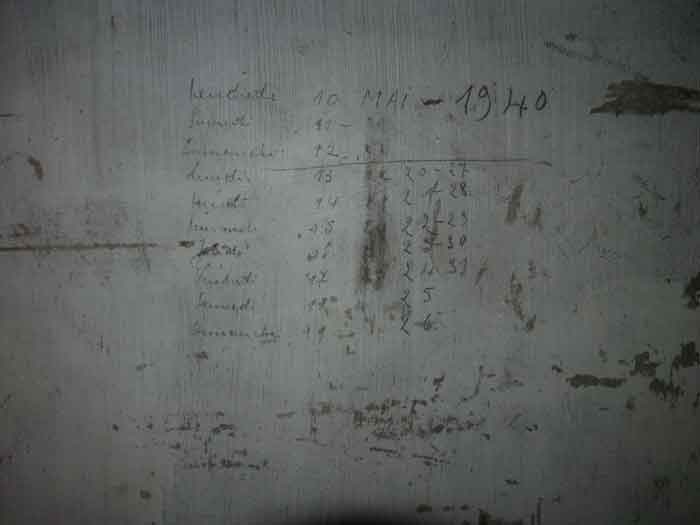 Vendredi 10 MAI - 1940
Samedi 11 -
Dimanche 12
Lundi 13 20-27
Mardi 14 21-28
15 22-29
Jeudi 16 23-30
Vendredi 17 24 31
Samedi 18 25
Dimanche 19 26